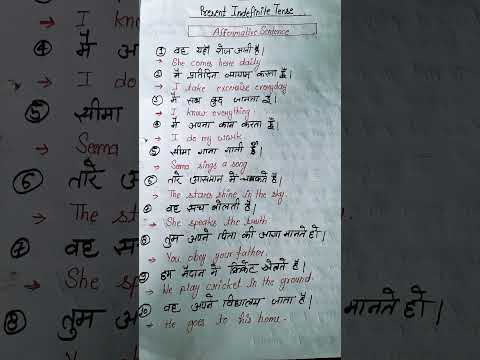 Present Indefinite Tense
Afformative Sentence
① वह यहाँ रोज आती है।
→ She comes here daily
② मैं प्रतिदिन व्यायाम करता हूँ।
→ I take excersise everyday
③ मैं सब कुछ जानता हूँ।
→ I know everything.
④ मैं अपना काम करता हूँ।
→ I do my work
⑤ सीमा गाना गाती है।
→ Sema sings a song
⑥ तारे आसमान में चमकते हैं।
→ The stares shine in the sky.
⑦ वह सच बोलती है।
→ She speaks the truth.
⑧ तुम अपने पिता की आज्ञा मानते हो।
→ You obey your father.
⑨ हम मैदान में क्रिकेट खेलते हैं।
→ We play cricket in the ground.
⑩ वह अपने विद्यालय जाता है।
→ He goes to his home.